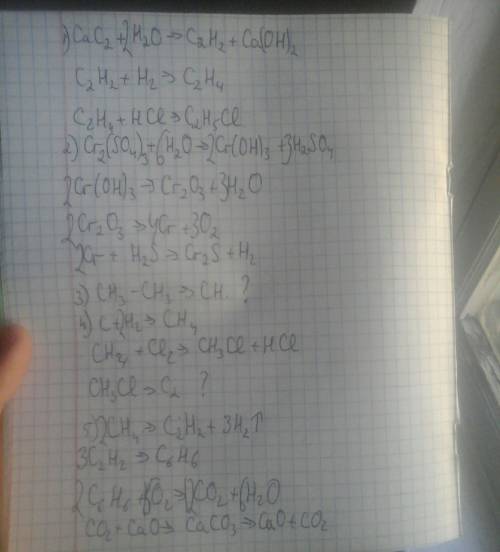 1) CaC₂ + 2H₂O → C₂H₂ + Ca(OH)₂
C₂H₂ + H₂ → C₂H₄
C₂H₄ + HCl → C₂H₅Cl
2) Cr₂(SO₄)₃ + 6H₂O → 2Cr(OH)₃ + 3H₂SO₄
2Cr(OH)₃ → Cr₂O₃ + 3H₂O
2Cr₂O₃ → 4Cr + 3O₂
2Cr + H₂S → Cr₂S + H₂
3) CH₃ - CH₃ → CH. ?
4) C + 2H₂ → CH₄
CH₄ + Cl₂ → CH₃Cl + HCl
CH₃Cl → C₂ ?
5) 2CH₄ → C₂H₂ + 3H₂↑
3C₂H₂ → C₆H₆
2C₆H₆ + O₂ → 12CO₂ + 6H₂O
CO₂ + CaO → CaCO₃ → CaO + CO₂